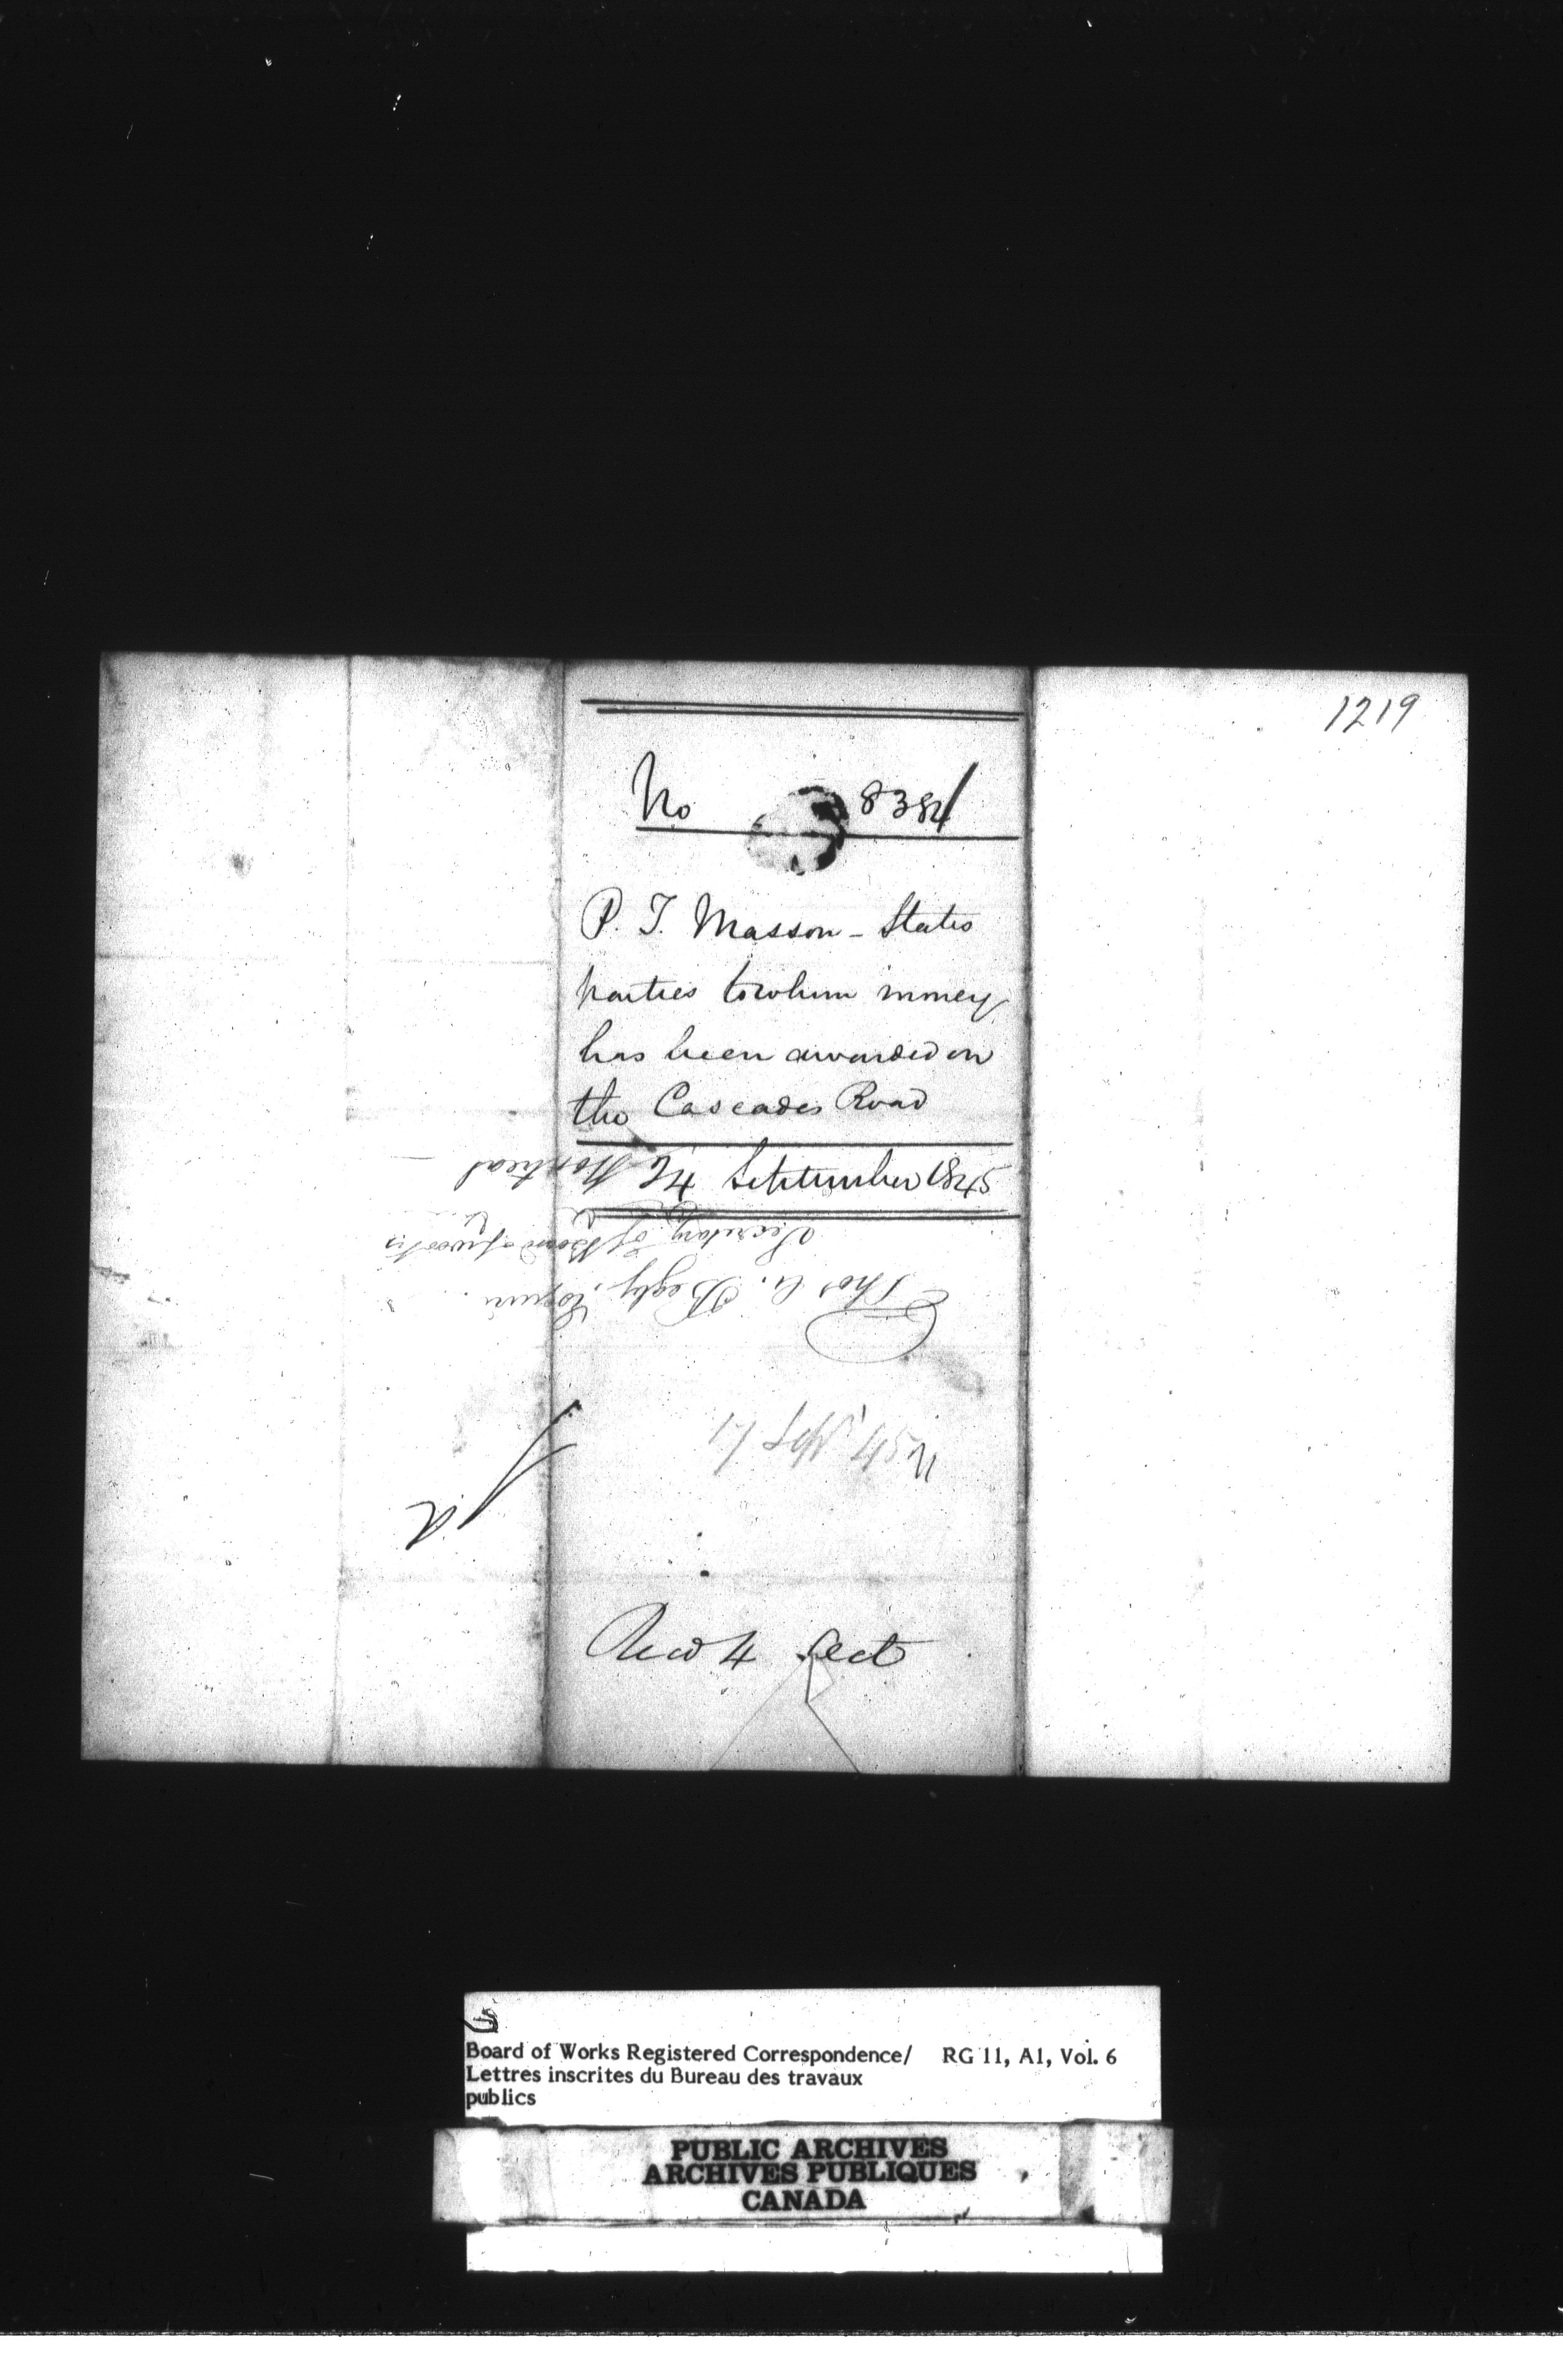 1219
No 8384
P. T. Masson - States
parties to whom money
has been awarded on
the Cascades Road
September 1845
Thos A. Begly, Esquire
Secretary of Board of Works
Montreal
Recd 4 Oct
Board of Works Registered Correspondence/ RG 11, A1, Vol. 6
Lettres inscrites du Bureau des travaux
publics
PUBLIC ARCHIVES
ARCHIVES PUBLIQUES
CANADA